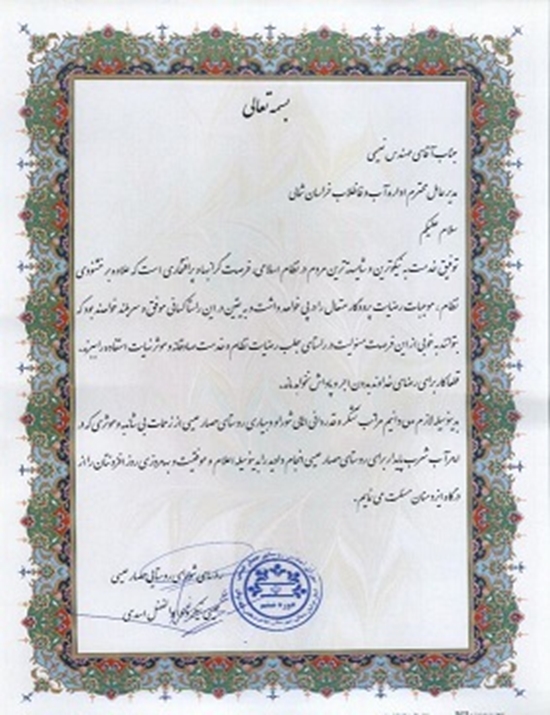 بسمه تعالی
جناب آقای مهندس نعیمی
مدیرعامل محترم اداره آب و فاضلاب خراسان شمالی
سلام علیکم
توفیق خدمت به نیکوترین و شایسته ترین مردم در نظام اسلامی، فرصت گرانبها و پرافتخاری است که علاوه بر خشنودی
نظام، موجبات رضایت پروردگار متعال را در پی خواهد داشت و به یقین در این راستا کسانی موفق و سربلند خواهند بود که
بتوانند به خوبی از این فرصت مسئولیت در راستای جلب رضایت نظام و خدمت صادقانه و موثر نهایت استفاده را ببرند.
قطعا کار برای رضای خداوند بدون اجر و پاداش نخواهد ماند.
بدینوسیله لازم می دانیم مراتب تشکر و قدردانی اهالی شورا و دهیاری روستای حصار عیسی از زحمات بی شائبه و موثری که در
امر آب شرب پایدار برای روستای حصار عیسی انجام دادید را بدینوسیله اعلام و موفقیت و بهروزی روز افزونتان را از
درگاه ایزد منان مسئلت می نمایم.
شورای روستای حصار عیسی
اسدی